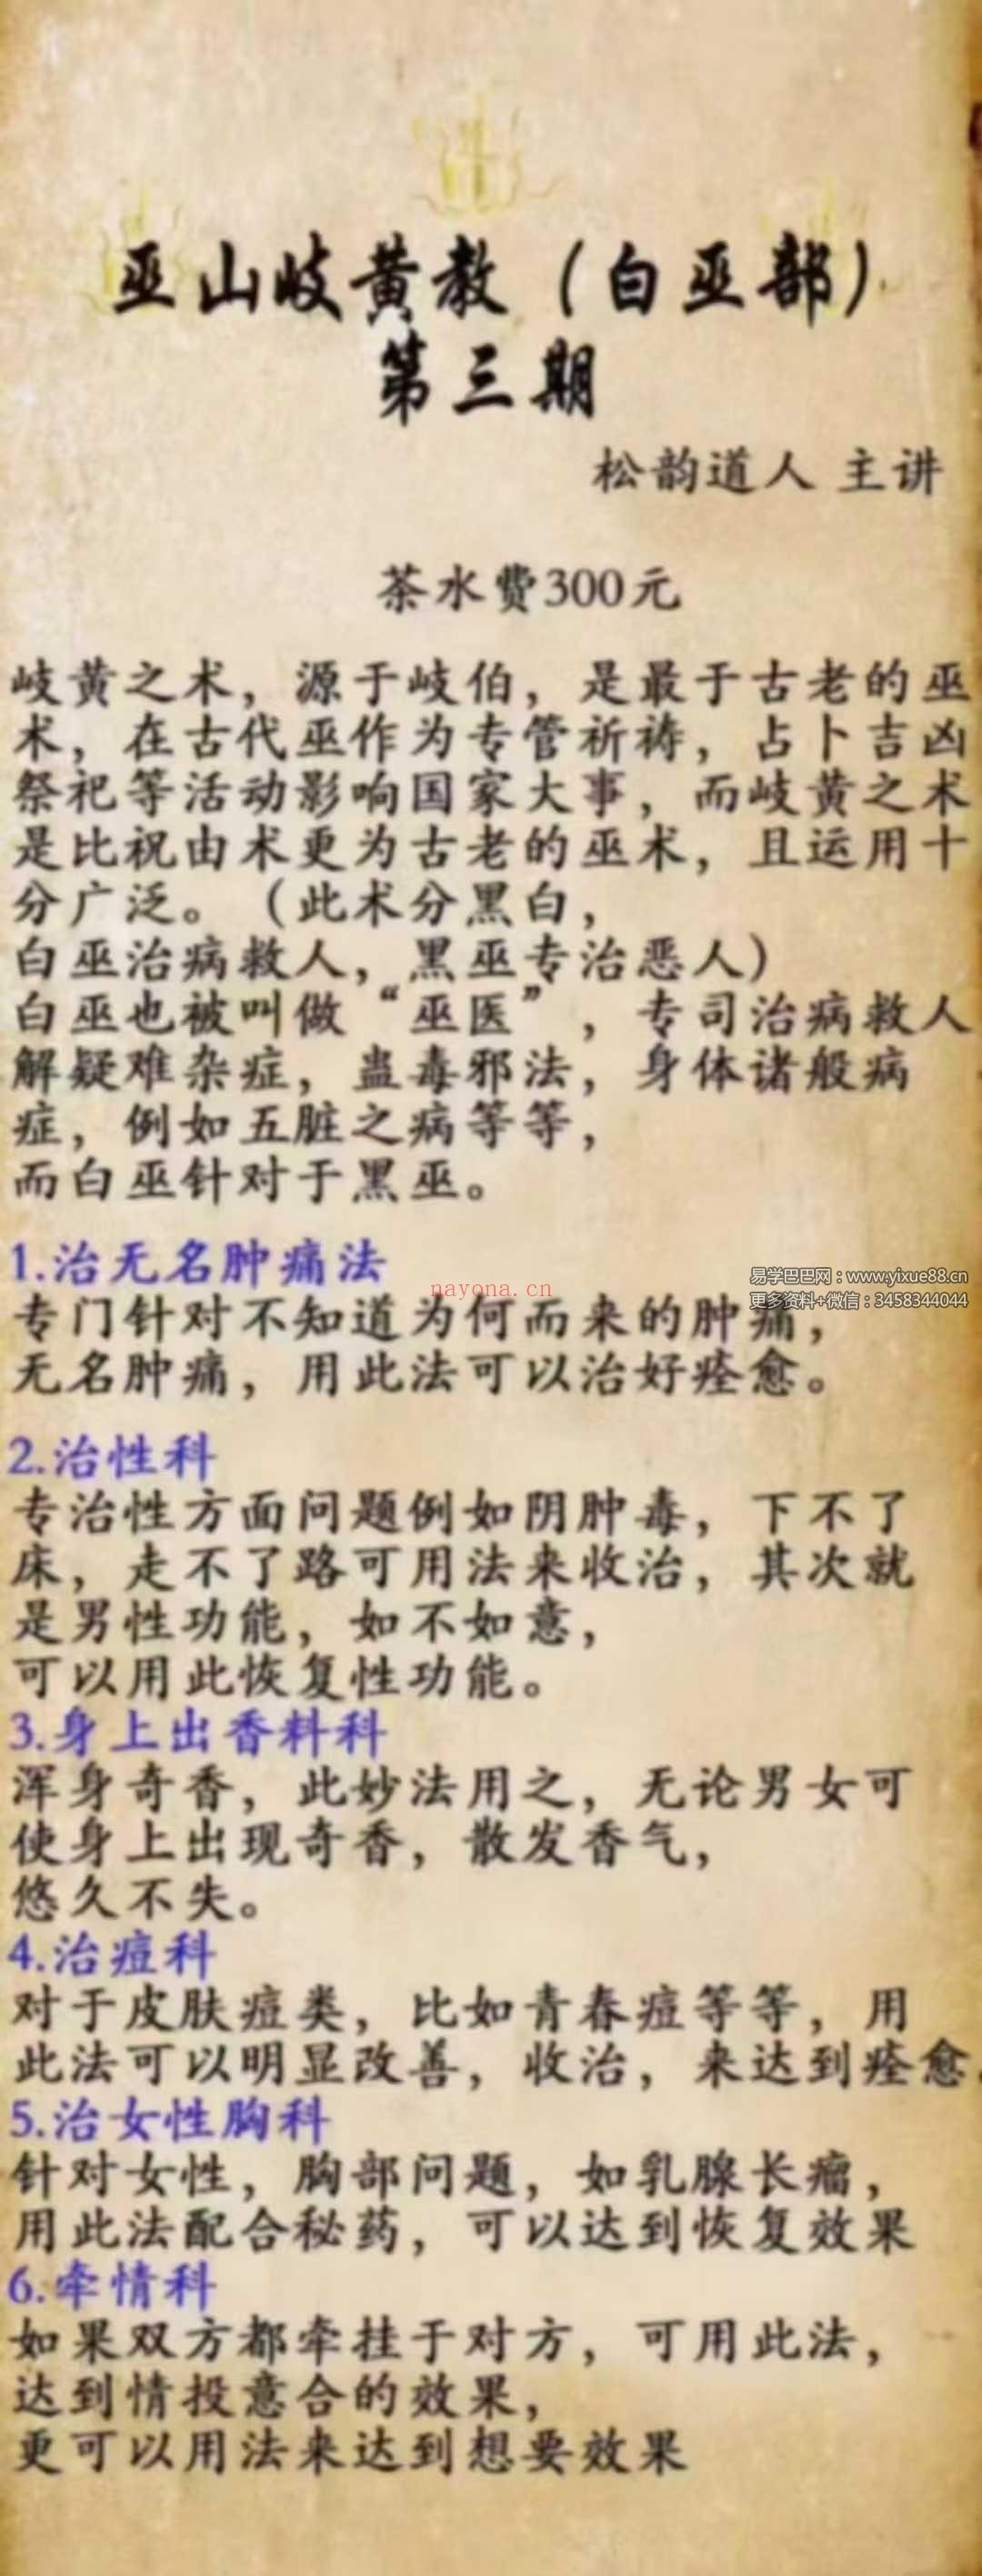 巫山岐黄教（白巫部）
第三期
松韵道人 主讲
茶水费300元
岐黄之术，源于岐伯，是最于古老的巫
术，在古代巫作为专管祈祷，占卜吉凶
祭祀等活动影响国家大事，而岐黄之术
是比祝由术更为古老的巫术，且运用十
分广泛。（此术分黑白，
白巫治病救人，黑巫专治恶人）
白巫也被叫做“巫医”，专司治病救人
解疑难杂症，蛊毒邪法，身体诸般病
症，例如五脏之病等等，
而白巫针对于黑巫。
1.治无名肿痛法
易学巴巴网：www.yixue88.cn
nayona.cn
更多资料+微信：3458344044
专门针对不知道为何而来的肿痛，
无名肿痛，用此法可以治好痊愈。
2.治性科
专治性方面问题例如阴肿毒，下不了
床，走不了路可用法来收治，其次就
是男性功能，如不如意，
可以用此恢复性功能。
3.身上出香料科
浑身奇香，此妙法用之，无论男女可
使身上出现奇香，散发香气，
悠久不失。
4.治痘科
对于皮肤痘类，比如青春痘等等，用
此法可以明显改善，收治，来达到痊愈.
5.治女性胸科
针对女性，胸部问题，如乳腺长瘤，
用此法配合秘药，可以达到恢复效果
6.牵情科
如果双方都牵挂于对方，可用此法，
达到情投意合的效果，
更可以用法来达到想要效果